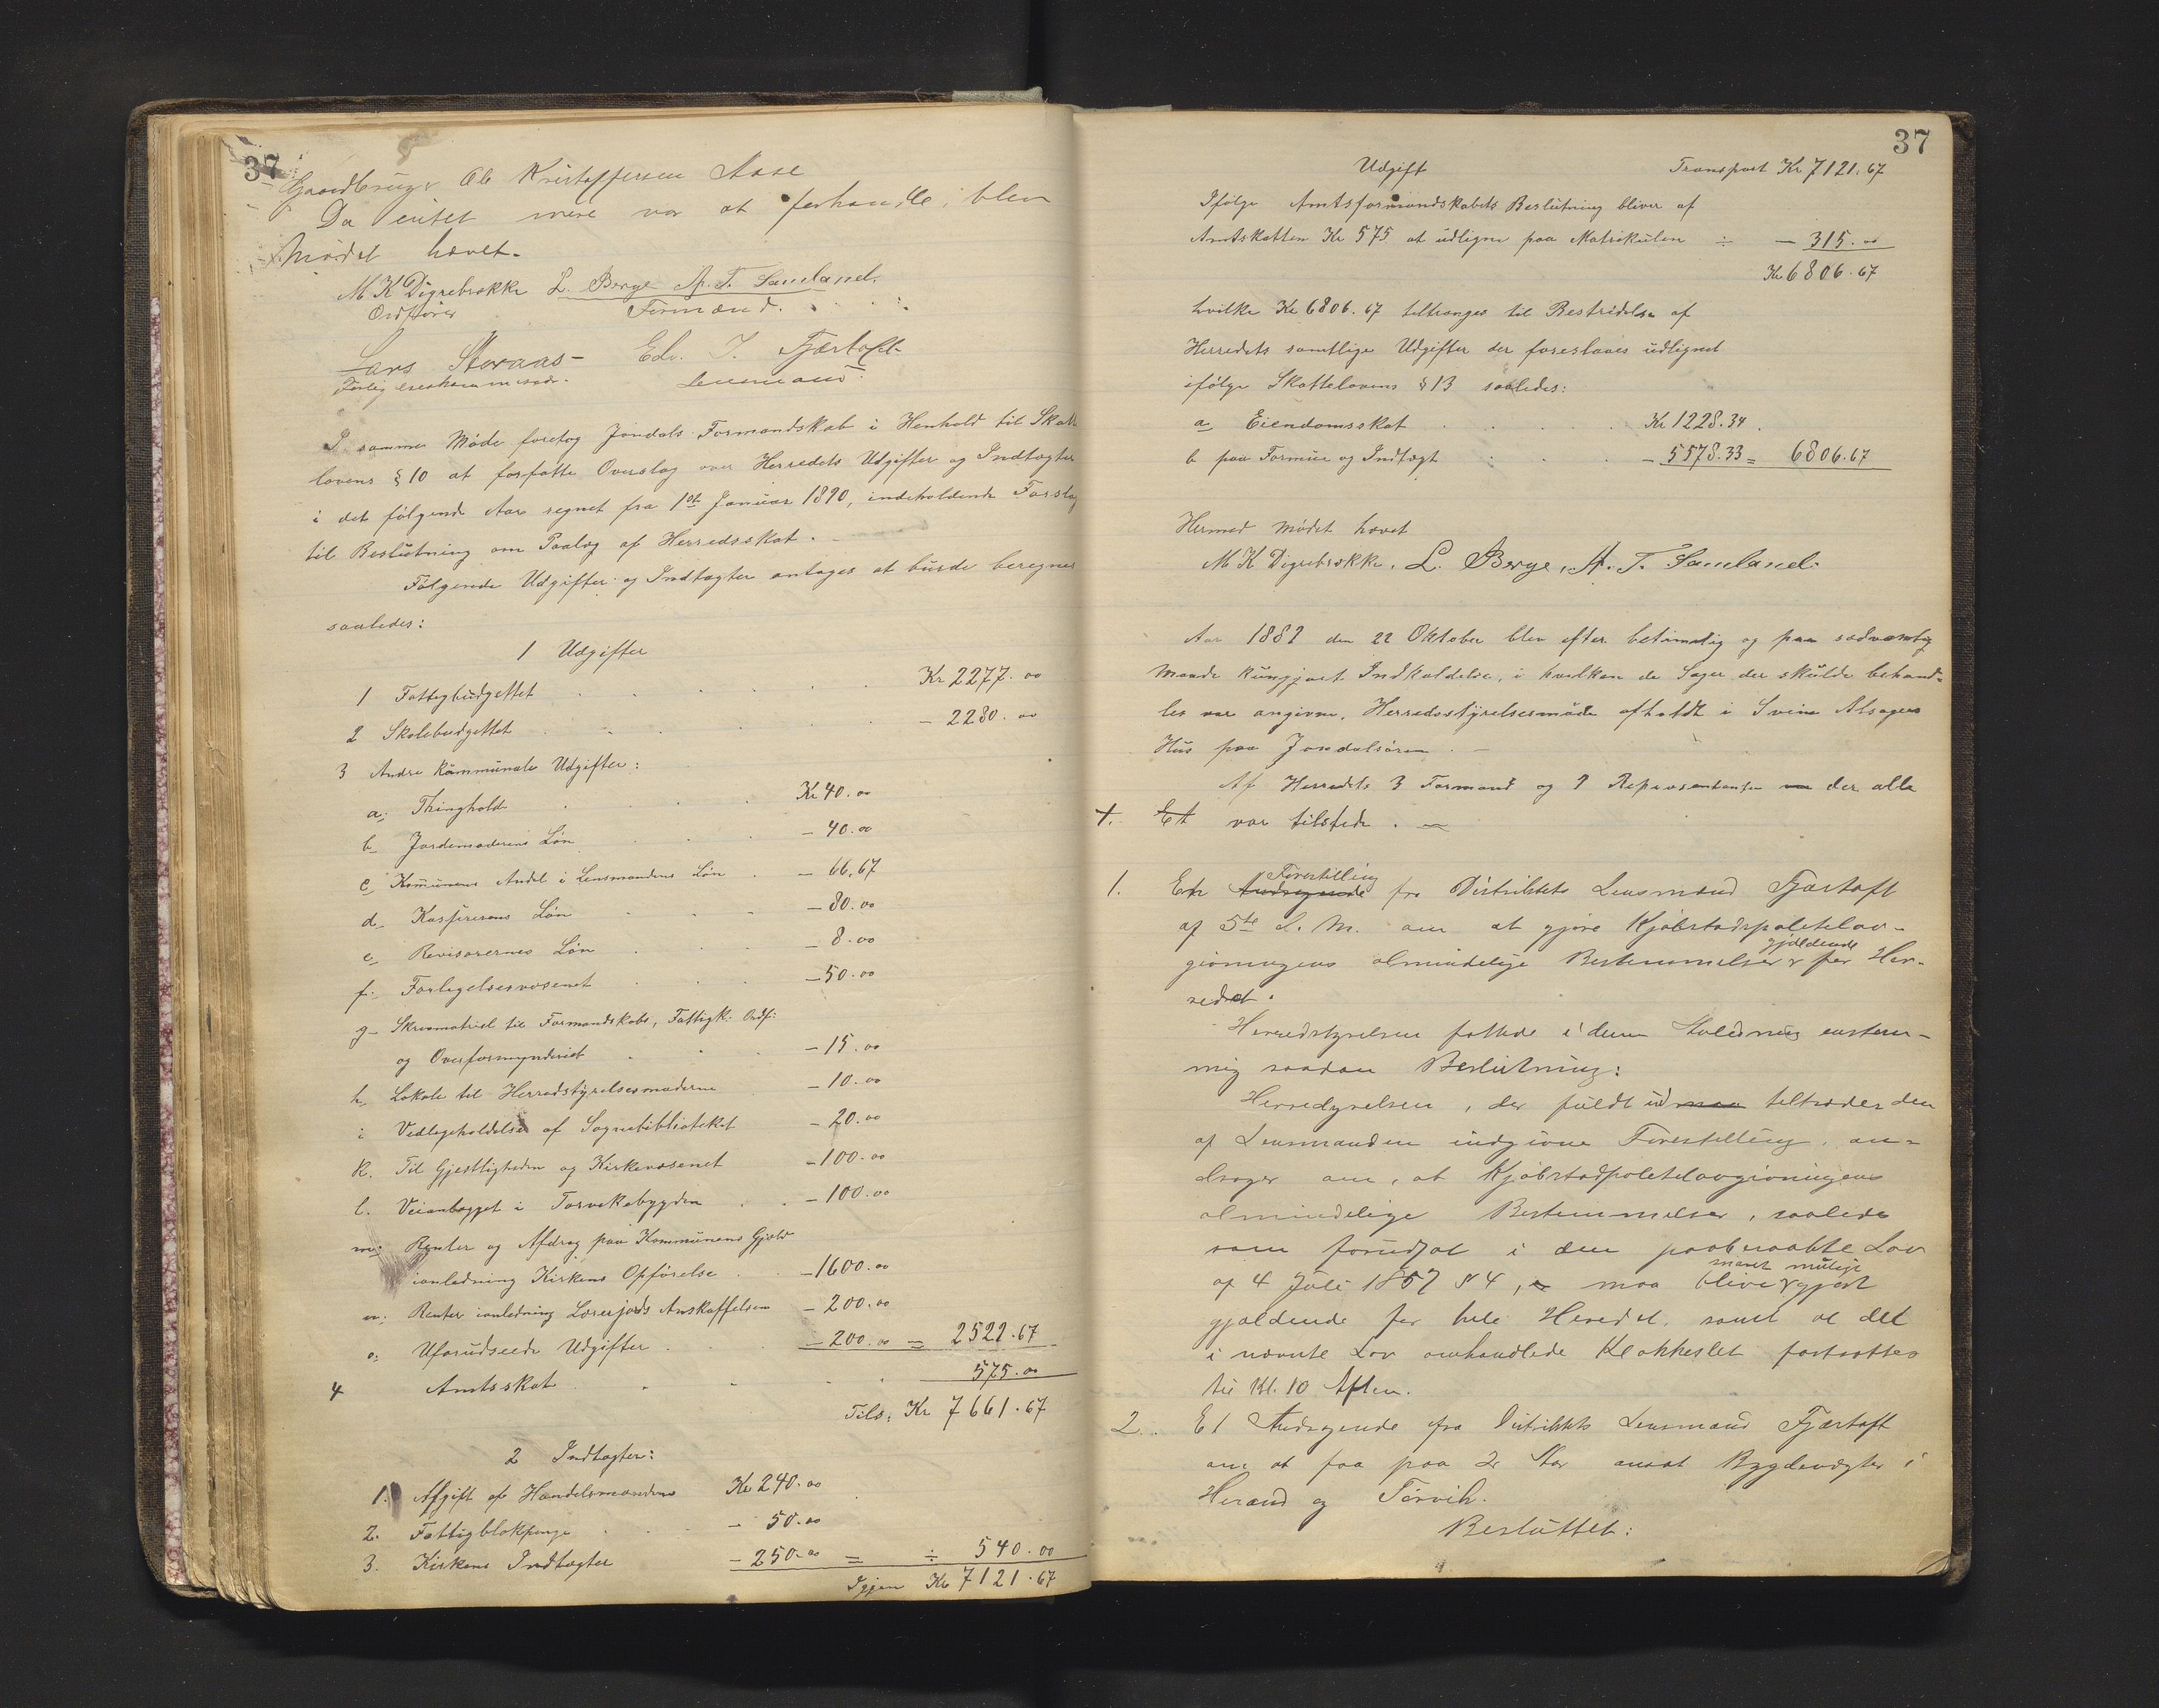 37
Gaardbruger Ole Kristoffersen Aase
Da intet mere var at forhandle, blev
Mødet hævet.
M K Digrebrække L. Berge A. T. Samland.
Ordfører Formænd.
Lars Storaas - Edv. J. Fjærtoft
Forlig Lensmand
I samme Møde foretog Jondals Formandskab i Henhold til Skatte
lovens § 10 at forfatte Overslag over Herredets Udgifter og Indtægter
i det følgende Aar regnet fra 1ste Januar 1890, indeholdende Forslag
til Beslutning om Paalæg af Herredsskat. -
Følgende Udgifter og Indtægter antages at burde beregnes
saaledes:
1 Udgifter
1 Fattigbudgettet Kr 2277.00
2 Skolebudgettet - 2280.00
3 Andre kommunale Udgifter:
a. Thinghold Kr 40.00
b. Jordemoderens Løn - 40.00
c. Kommunens Andel i Lensmandens Løn - 66.67
d. Kasserernes Løn - 80.00
e. Revisorernes Løn - 8.00
f. Forlegelsesvæsenet - 50.00
g. Skrivmatriel til Formandskabs, Fattigk. Ordf:
og Overformynderiet - 15.00
h. Lokale til Herredstyrelsesmøderne - 10.00
i Vedligeholdelse af Sognebiblioteket - 20.00
k. Til Gjestligheden og Kirkevæsenet - 100.00
l. Veianlægget i Torvikebygden - 100.00
m. Renter og Afdrag paa Kommunens Gjæld
ianledning Kirkens Opførelse - 1600.00
n. Renter ianledning Lærerjords Anskaffelsen - 200.00
o. Uforudseede Udgifter - 200.00 = 2529.67
4 Amtsskat 575.00
Tils: Kr 7661.67
2 Indtægter:
1. Afgift af Handelsmændene Kr 240.00
2. Fattigblokpenge - 50.00
3. Kirkens Indtægter - 250.00 = ÷ 540.00
Igjen Kr 7121.67
37
Udgift Transport Kr 7121.67
Ifølge Amtsformandskabets Beslutning bliver af
Amtskatten Kr 575 at udligne paa Matrikulen ÷ - 315.00
Kr 6806.67
hvilke Kr 6806.67 tiltrænges til Bestridelse af
Herredets samtlige Udgifter der foreslaaes udlignet
ifølge Skattelovens § 13 saaledes:
a Eiendomsskat Kr 1228.34
b paa Formue og Indtægt - 5578.33 = 6806.67
Hermed Mødet hævet
M K Digrebrække, L. Berge, A. T. Samland.
Aar 1889 den 22 Oktober blev efter betimelig og paa sædvanlig
Maade kungjort Indkaldelse, i hvilken de Sager der skulde behand-
les var angivne, Herredsstyrelsesmøde afholdt i Svein Alsagers
Hus paa Jondalsøren. -
Af Herredets 3 Formænd og 9 Repræsentanter der alle
1. Et var tilstede. -
1. En Andragende Forestilling fra Distriktets Lensmand Fjærtoft
af 5te d. M. om at gjøre Kjøbstadspolitilov-
givningens almindelige Bestemmelser gjældende for Her-
redet.
Herredstyrelsen fattede i denne Anledning enstem-
mig saadan Beslutning:
Herredyrelsen, der fuldt ud tiltræder den
af Lensmanden indgivne Forestilling, an-
drager om, at Kjøbstadpolitilovgivningens
almindelige Bestemmelser, saaledes
som forudsat i den paaberaabte Lov
af 4 Juli 1857 § 4, maa blive snarest mulige gjort
gjældende for hele Herredet, samt at det
i nævnte Lov omhandlede Klokkeslet fastsættes
til Kl. 10 Aften.
2. Et Andragende fra Distriktets Lensmand Fjærtoft
om at faa paa 2 Aar ansat Bygdevægter i
Herand og Torvik.
Besluttet: